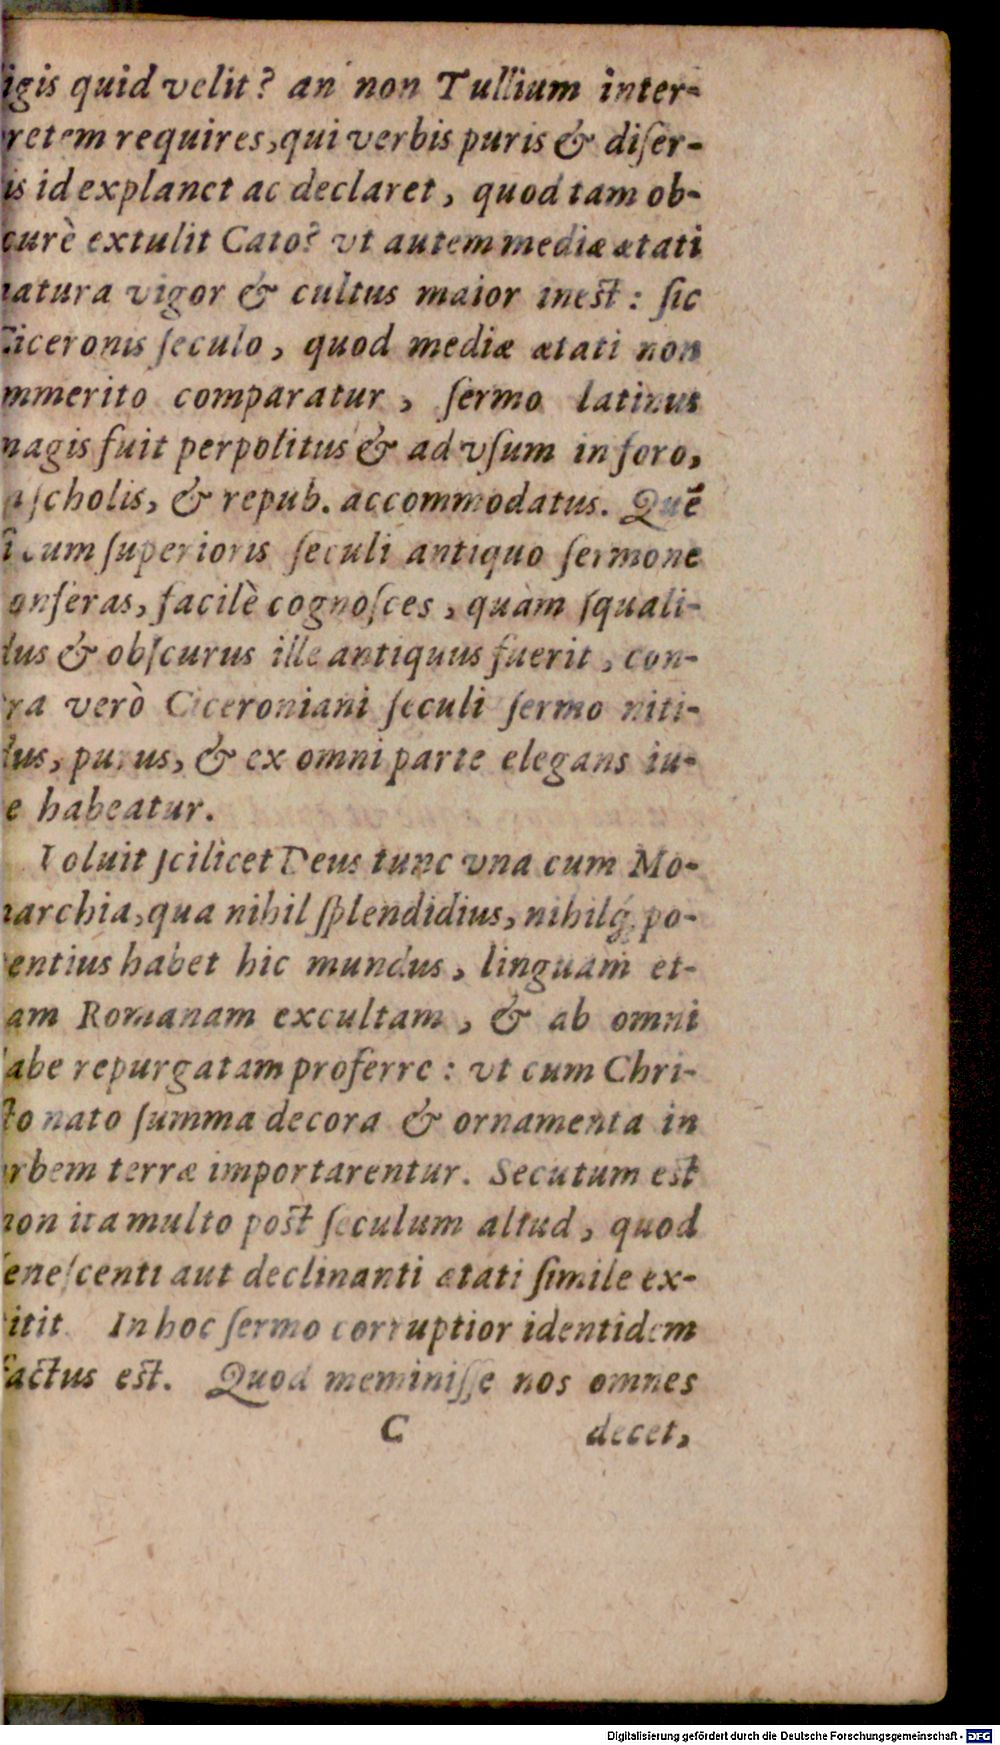 igis quid velit? an non Tullium inter-
retem requires, qui verbis puris & diſer-
is id explanet ac declaret, quod tam ob-
curè extulit Cato? vt autem mediæ ætati
natura vigor & cultus maior inest: ſic
Ciceronis ſeculo, quod mediæ ætati non
mmerito comparatur, ſermo latinus
magis fuit perpolitus & ad vſum in foro,
ſcholis, & repub. accommodatus. Quē
ſi cum ſuperioris ſeculi antiquo ſermone
onferas, facilè cognoſces, quàm ſquali-
dus & obſcurus ille antiquus fuerit, con-
ra verò Ciceroniani ſeculi ſermo niti-
dus, purus, & ex omni parte elegans iu-
e habeatur.
Voluit ſcilicet Deus tunc vna cum Mo-
narchia, qua nihil ſplendidius, nihilq́; po-
entius habet hic mundus, linguam et-
am Romanam excultam, & ab omni
labe repurgatam proferre: vt cum Chri-
ſto nato ſumma decora & ornamenta in
rbem terræ importarentur. Secutum est
non ita multo post ſeculum aliud, quod
ſeneſcenti aut declinanti ætati ſimile ex-
itit. In hoc ſermo corruptior identidem
factus est. Quod meminiſſe nos omnes
C decet,
Digitalisierung gefördert durch die Deutsche Forschungsgemeinschaft - DFG